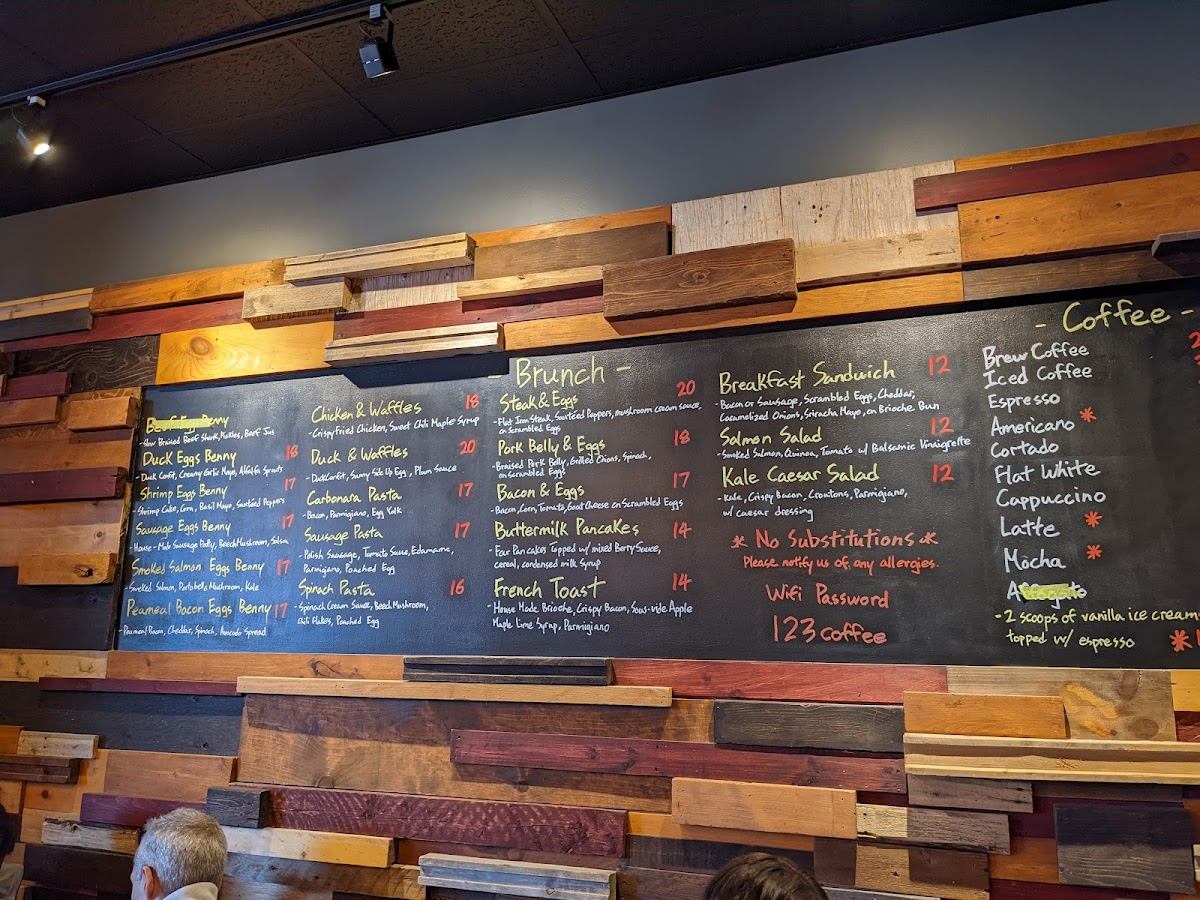 - Brunch -
Beef Egg Benny
- Slow Braised Beef Shank, Pickles, Beef Jus
Duck Eggs Benny 18
- Duck Confit, Creamy Garlic Mayo, Alfalfa Sprouts
Shrimp Eggs Benny 17
- Shrimp Cake, Corn, Basil Mayo, Sautéed Peppers
Sausage Eggs Benny 17
- House-Made Sausage Patty, Beech Mushroom, Salsa
Smoked Salmon Eggs Benny 17
- Smoked Salmon, Portobello Mushroom, Kale
Peameal Bacon Eggs Benny 17
- Peameal Bacon, Cheddar, Spinach, Avocado Spread
Chicken & Waffles 18
- Crispy Fried Chicken, Sweet Chili Maple Syrup
Duck & Waffles 20
- Duck Confit, Sunny Side Up Egg, Plum Sauce
Carbonara Pasta 17
- Bacon, Parmigiano, Egg Yolk
Sausage Pasta 17
- Polish Sausage, Tomato Sauce, Edamame,
Parmigiano, Poached Egg
Spinach Pasta 16
- Spinach Cream Sauce, Beech Mushroom,
Chili Flakes, Poached Egg
Steak & Eggs 20
- Flat Iron Steak, Sautéed Peppers, mushroom cream sauce,
on Scrambled Eggs
Pork Belly & Eggs 18
- Braised Pork Belly, Grilled Onions, Spinach,
on Scrambled Eggs
Bacon & Eggs 17
- Bacon, Corn, Tomato, Goat Cheese on Scrambled Eggs
Buttermilk Pancakes 14
- Four Pancakes Topped w/ mixed Berry Sauce,
cereal, condensed milk Syrup
French Toast 14
- House Made Brioche, Crispy Bacon, Sous-vide Apple
Maple Lime Syrup, Parmigiano
Breakfast Sandwich 12
- Bacon or Sausage, Scrambled Eggs, Cheddar,
Caramelized Onions, Sriracha Mayo, on Brioche Bun
Salmon Salad 12
- Smoked Salmon, Quinoa, Tomato w/ Balsamic Vinaigrette
Kale Caesar Salad 12
- Kale, Crispy Bacon, Croutons, Parmigiano,
w/ caesar dressing
* No Substitutions *
Please notify us of any allergies.
Wifi Password
123coffee
- Coffee -
Brew Coffee
Iced Coffee
Espresso
Americano *
Cortado
Flat White
Cappuccino
Latte *
Mocha *
Affogato
- 2 scoops of vanilla ice cream
topped w/ espresso